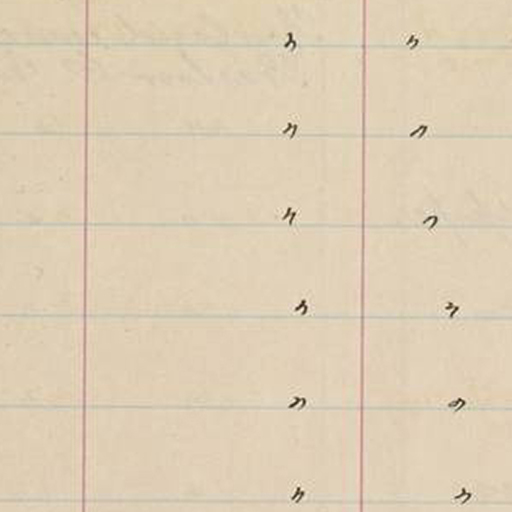 " "
" "
" "
" "
" "
" "